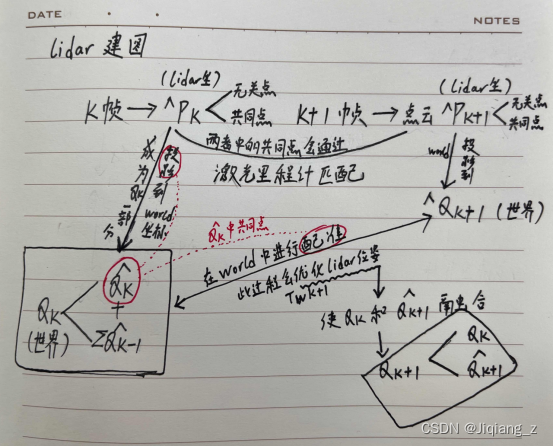 DATE
NOTES
Lidar 建图
(Lidar坐)
(Lidar坐)
K帧 → ^PK
无关点
共同点
K+1 帧 → 点云 ^PK+1
无关点
共同点
两者中的共同点会通过
激光里程计匹配
投影到
world
坐标
成为
QK
一部分
world
投影到
^QK+1 (世界)
^QK中共同点
在world中进行配准
此过程会优化Lidar位姿
TWK+1
QK
(世界)
^QK
+
Σ^QK-1
使QK和 ^QK+1
融合
QK+1
QK
^QK+1
CSDN @Jiqiang_z